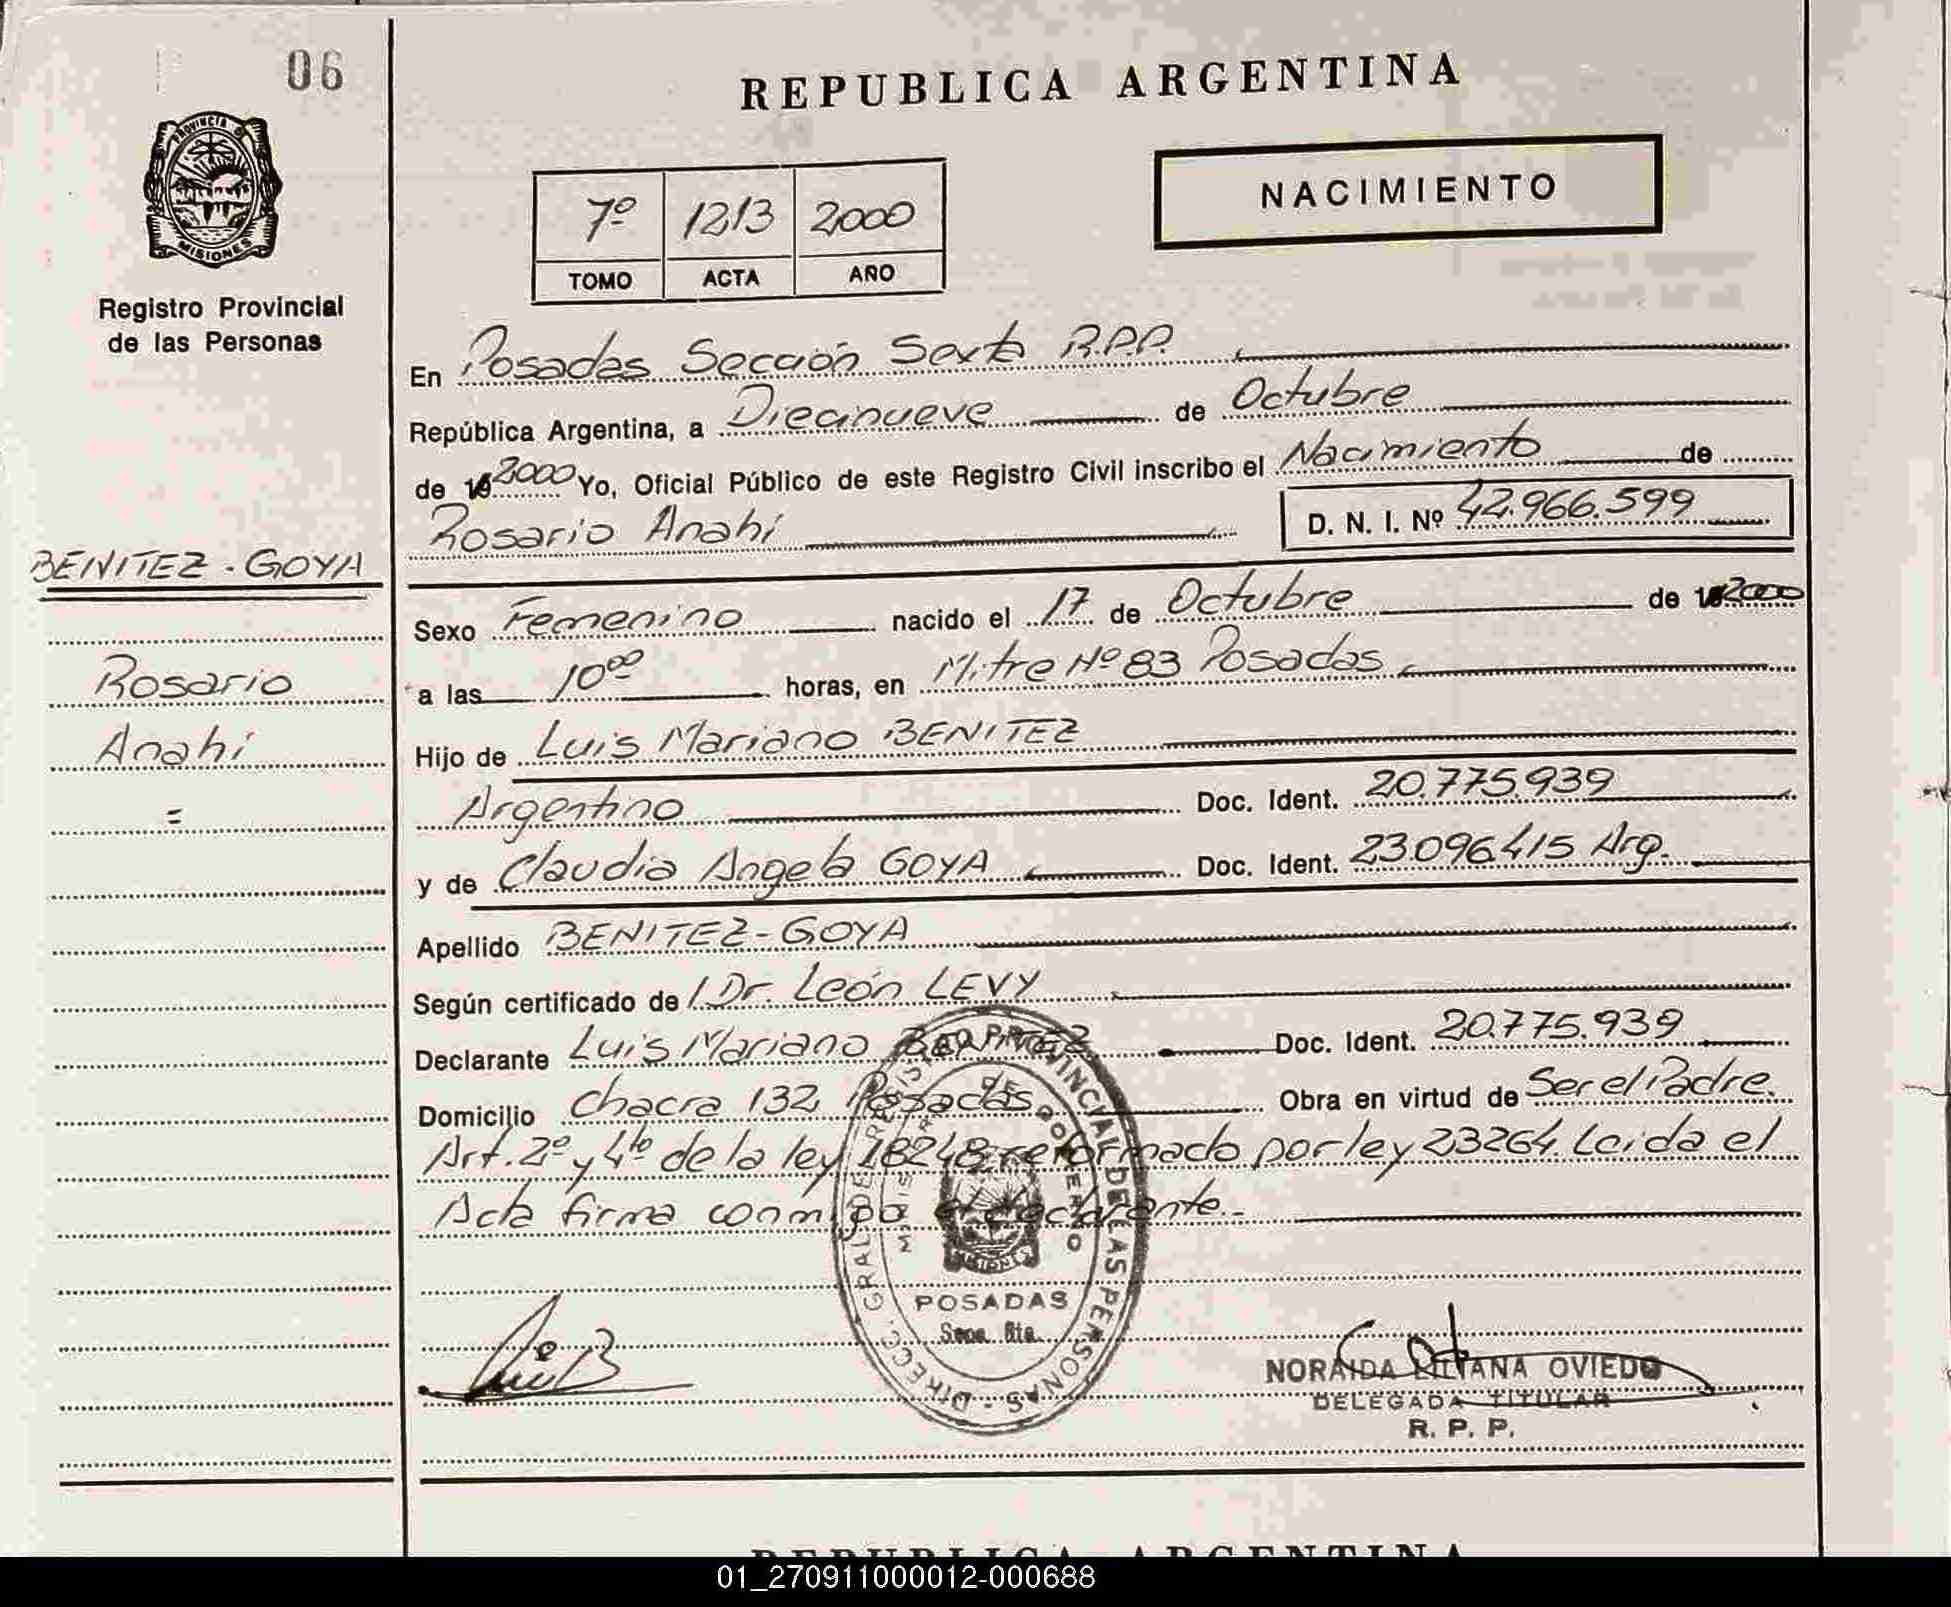 06
PROVINCIA DE
MISIONES
Registro Provincial
de las Personas
BENITEZ - GOYA
Rosario
Anahí
=
REPUBLICA ARGENTINA
NACIMIENTO
7º 1213 2000
TOMO ACTA AÑO
En Posadas Sección Sexta R.P.P.
República Argentina, a Diecinueve de Octubre
de 2000 Yo, Oficial Público de este Registro Civil inscribo el Nacimiento de
Rosario Anahí D. N. I. Nº 42.966.599
Sexo Femenino nacido el 17 de Octubre de 2000
a las 10⁰⁰ horas, en Mitre Nº 83 Posadas
Hijo de Luis Mariano BENITEZ
Argentino Doc. Ident. 20.775.939
y de Claudia Angela GOYA Doc. Ident. 23.096.415 Arg.
Apellido BENITEZ-GOYA
Según certificado de l Dr. León LEVY
Declarante Luis Mariano BENITEZ Doc. Ident. 20.775.939
Domicilio Chacra 132, Posadas Obra en virtud de Ser el Padre.
Art. 2º y 4to de la ley 18248 reformado por ley 23264. Leida el
Acta firma conmigo el declarante.-
DIRECC. GRAL. DE REGISTRO PROVINCIAL DE LAS PERSONAS
DE GOBIERNO
MISIONES
POSADAS
Secc. 6ta.
NORAIDA LILIANA OVIEDO
DELEGADA TITULAR
R. P. P.
REPUBLICA ARGENTINA
01_270911000012-000688